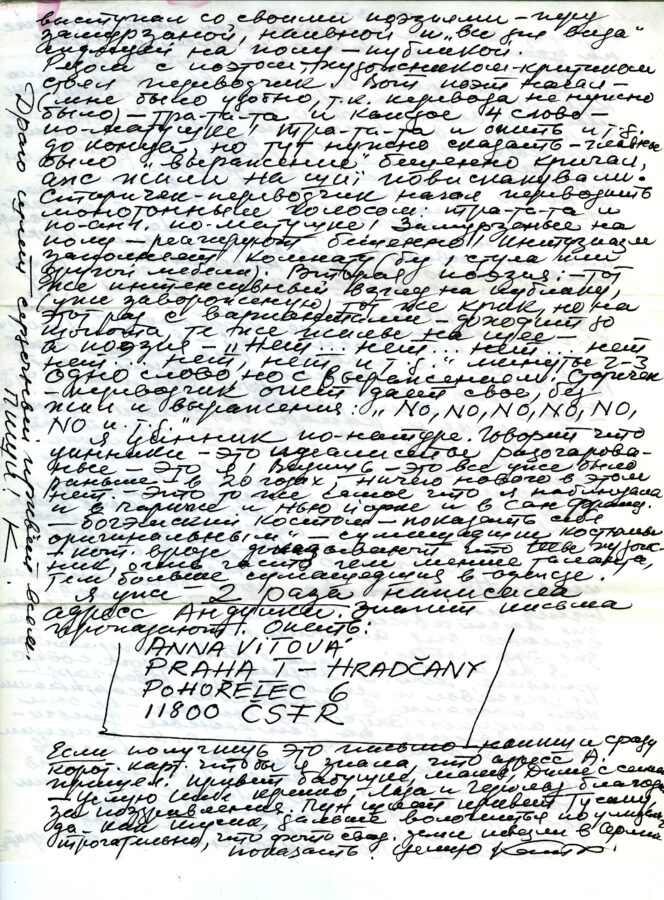 выступал со своими поэзиями – перед
замерзаной, наивной и "все для вида"
сидящей на полу – публикой.
Рядом с поэтом, художником-критиком
стоял переводчик. Вот поэт начал –
(мне было удобно, т.к. перевода не нужно
было) – тра-та-та и каждое 4 слово –
по-матушке! Тра-та-та и опять и т.д.
до конца, но тут нужно сказать – главные
было "выражение" бешенно кричал,
аж жилы на шеи повискакували.
Старичек-переводчик начал переводить
монотонным голосом: тра-та-та и
по-анг. по-матушке! Замерзаные на
полу – реагируют бешенно! Интузиазм
заполняет комнату (без 1 стула или
другой мебели). Вторая поэзия: – тот
же интенсивный взгляд на публику,
(уже завороженую) тот же крик, но на
этот раз с вариантами – доходит до
шопота, те же жилы на шее –
а поэзия – "Нет... нет... нет... нет
нет... нет, нет и т.д." минуты 2-3
одно слово но с выражением! Старичек
– переводчик опять дает свое, без
жил и выражения: "NO, NO, NO, NO, NO,
NO и т.д."
Я циник по-натуре. Говорят что
циники – это идеалисты разочарова-
ные – это я! Видишь – это все уже было
раньше – в 20 годах, ничего нового в этом
нет. – Это то же самое что я наблюдала
и в Париже и Нью Йорке и в Сан Франц.
– богэмский костюм – показать себя
оригинальным" – сумашедшии костюмы
– кот. вроде доказывают что тыже худож-
ник, очень часто чем меньше таланта,
тем больше сумашедшия в одежде.
Я уже 2 раза написала
адресс Андушки. Значит письма
пропадают. Опять:
ANNA VÍTOVÁ
PRAHA I – HRADČANY
POHOŘELEC 6
11800 ČSFR
Если получишь это письмо – напиши сразу
корот. карт. чтобы я знала, что адресс А.
пришел. Привет бабушке, маме, Диме с семьей
– целую Киш крепко – Лада и
за поздравления. шлет привет Гусану
да – как дальше волочиться по улицам
трогательно, что фото увезли в
показать. Целую
Драго шлет сердечный привет всем.
Пиши! К.